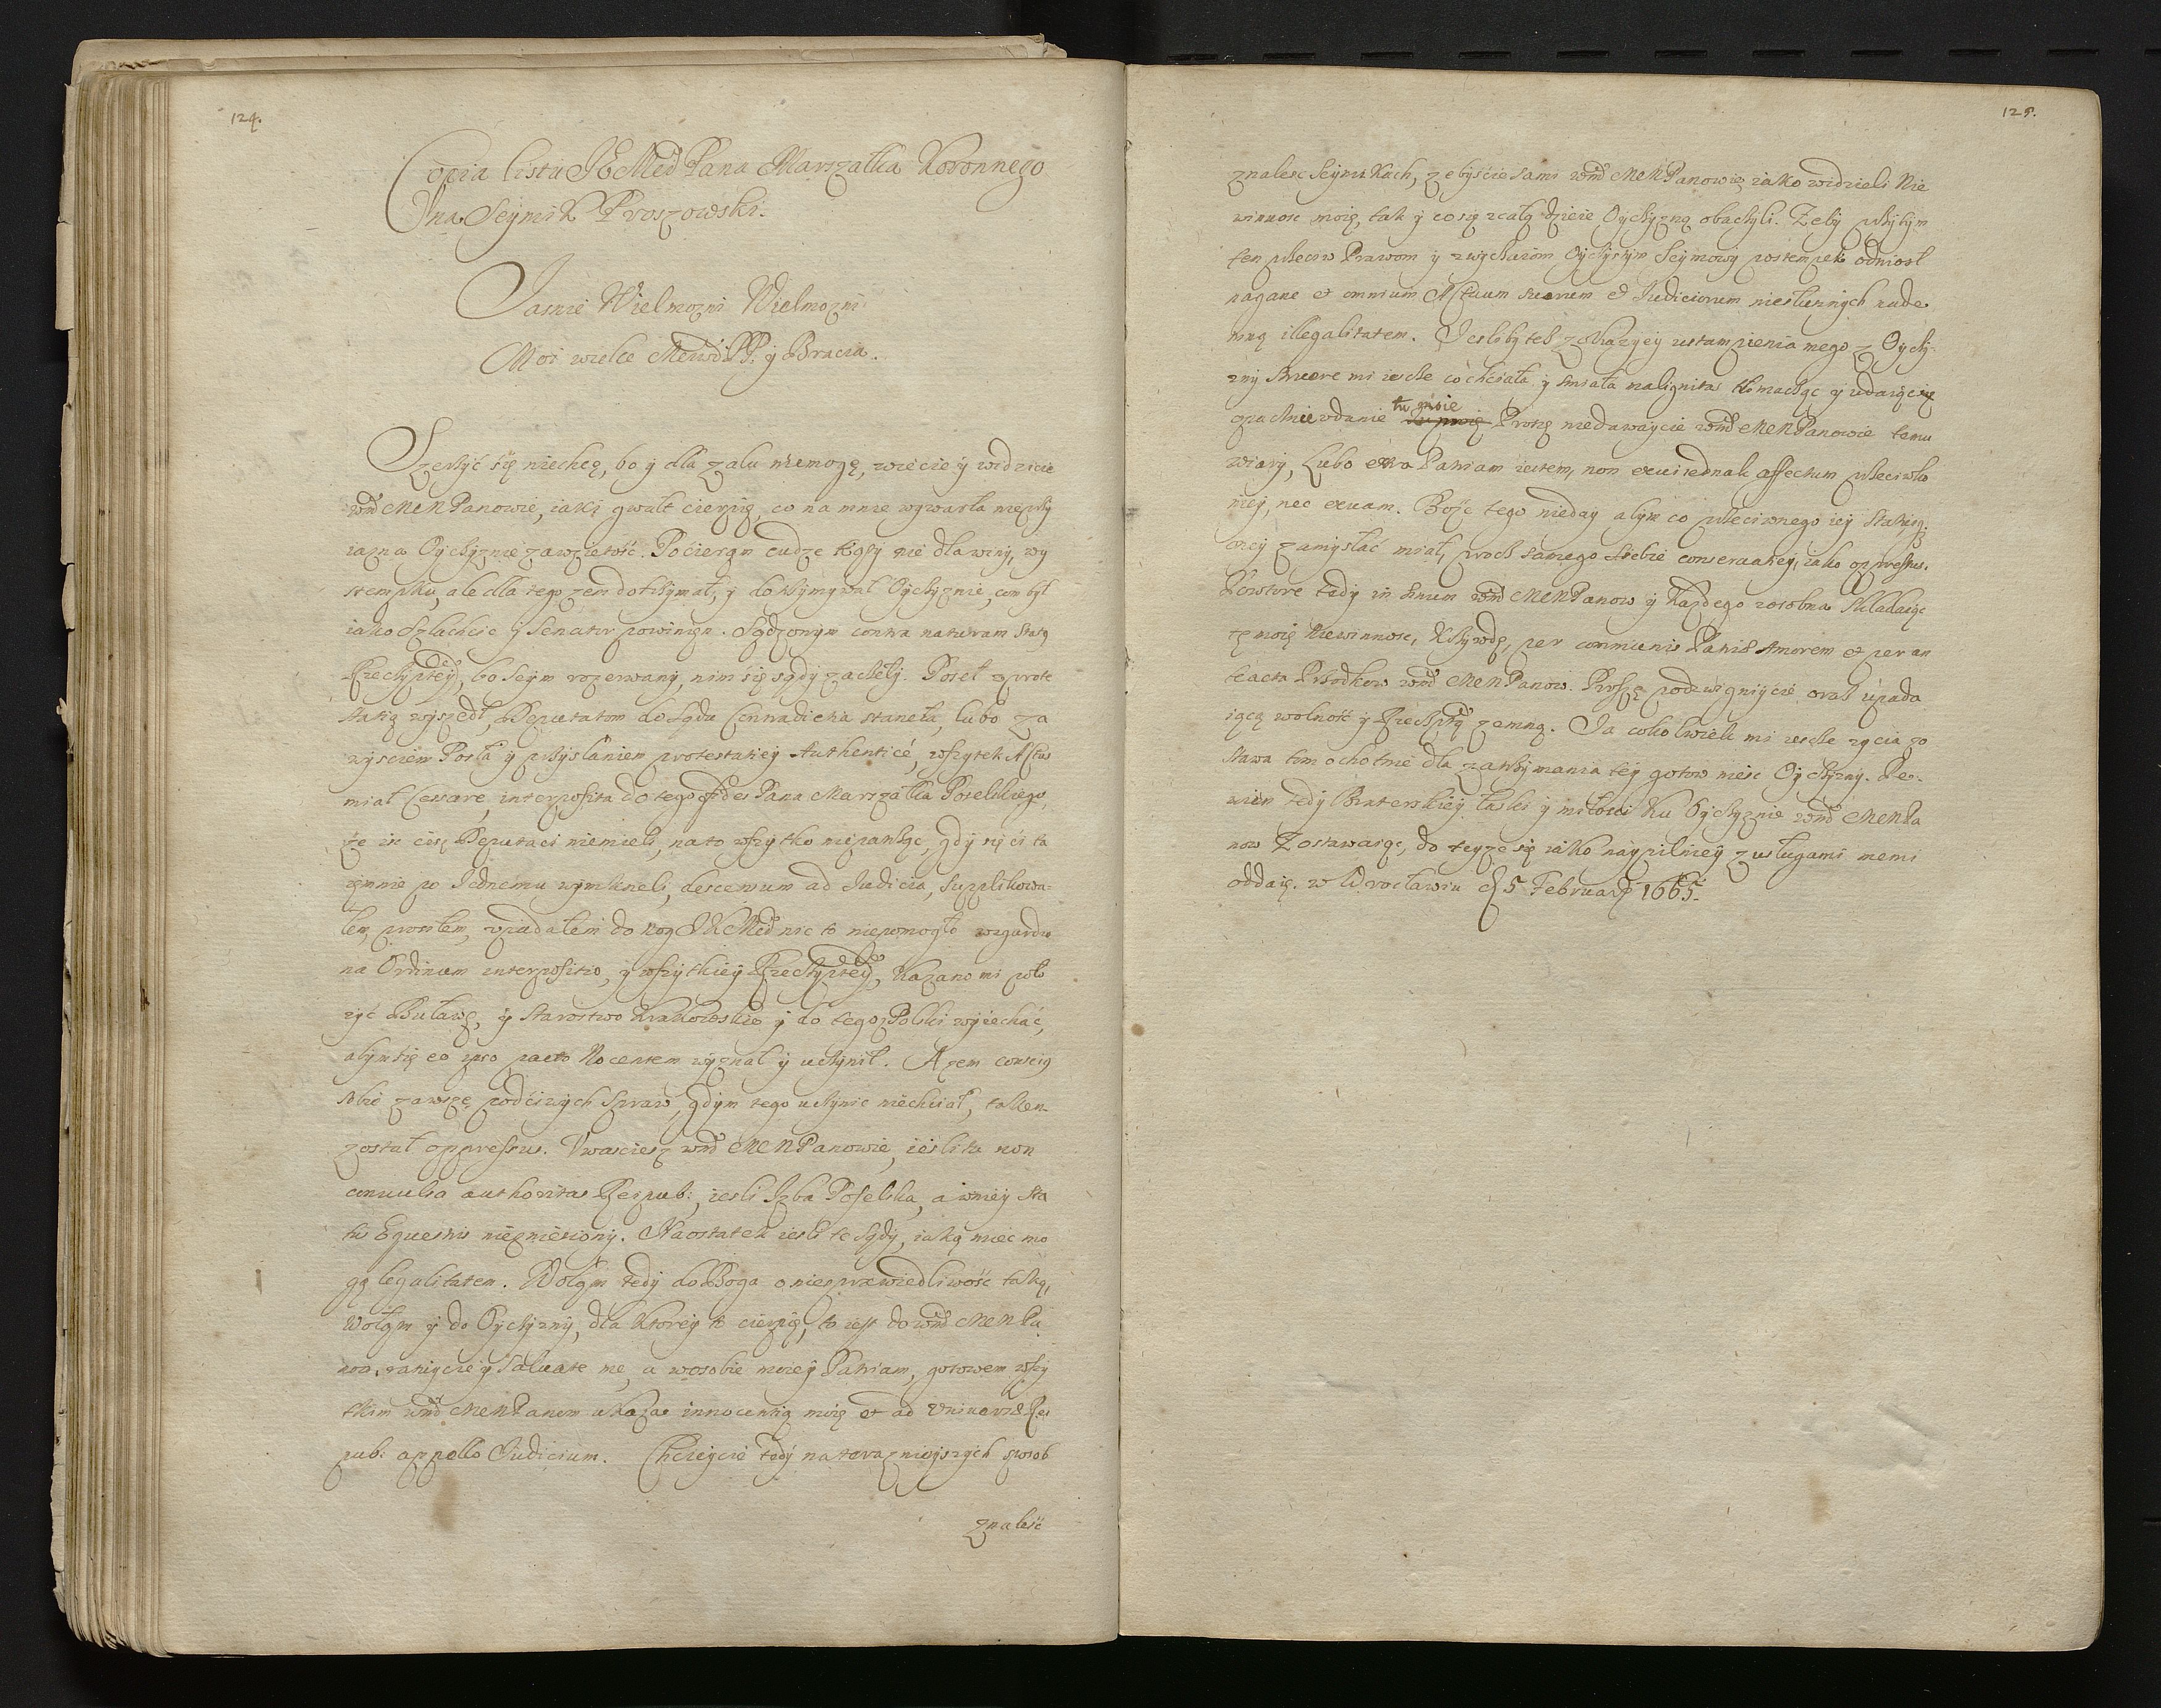 124.
Copia listu JE Mci Pana Marszałka Koronnego
na Seymik Proszowski.
Jasnie Wielmozni Wielmozni
Moi wielce Mciwi PP. y Bracia.
Szerzyć się niechcę, bo y dla zalu niemogę, wiecie y widzicie
wmć MMPanowie, iaki gwałt cierpię, co na mnie wywarła nieprzy
iazna Oyczyznie zawziętość. Pocieram cudze kąty nie dla winy, wy
stempku, ale dla tego zem dotrzymał, y dotrzymywał Oyczyznie, com był
iako Szlachcic y Senator powinien. Sądzonym contra naturam Statu
Rzeczyptey, bo Seym rozerwany, nim się sądy zaczęły. Poseł z prote
statią wyszedł, Deputatom do Sądu Contradictia staneła, lubo za
wysciem Posła y przysłaniem protestatiey Authenticé, wszytek Actus
miał Cessare, interposita do tego fides Pana Marszałka Poselskiego,
że iż ciż Deputaci niemieli, na to wszytko niepatrząc, gdy się ci ta
iemnie po Jednemu wymkneli, descensum ad Judicia, supplikowa-
łem, prosiłem, upadałem do nog JKMci nic to niepomogło wzgardzo
na Ordinum interpositio, y wszytkiey Rzeczyptey, kazano mi poło
zyć Buławę, y Starostwo Krakowskie y do tego z Polski wyiechać,
abym się eo ipso facto nocentem wyznał y uczynił. A zem conscius
sobie zawsze poczciwych spraw, gdym tego uczynic niechciał, takem
został oppressus. Uwazciesz wmć MMPanowie, iesli tu non
convulsa authoritas Reipub:, iesli Izba Poselska, a w niey sta
tus Equestris niezniesiony. Naostatek iesli te Sądy, iaką miec mo
gą legalitatem. Wołam tedy do Boga o niesprawiedliwość taką,
Wołam y do Oyczyzny, dla ktorey to cierpię, to iest do wmć MMPa
now, ratuycie y Salvate me, a w osobie moiey Patriam, gotowem wszy
tkim wmć MMPanom ukazac innocentią moię et ad Universae Rei
pub: appello Judicium. Chcieycie tedy na teraznieyszych sposob
znalesć
125.
znalesc Seymikach, zebyscie sami wmć MMPanowie iako widzieli nie
winnosc moię, tak y co się z całą dzieie Oyczyzną obaczyli. Zeby przytym
ten przeciw Prawom y zwyczaiom Oyczystym Seymowy postempek odniosł
naganę et omnium Actuum suorum et Judiciorum niesłusznych nade
mną illegalitatem. Jesliby tesz z okazyey ustampienia mego z Oyczy
zny struere mi ieszcze co chciała y smiała malignitas tłomacząc y udaiąc ie
opacznie udanie tu moie Proszę niedawaycie wmć MMPanowie temu
wiary, Lubo extra Patriam iestem, non exui iednak affectum przeciwko
niey, nec exuam. Boże tego nieday abym co przeciwnego iey
zamyslać miał, procz samego siebie conservatiey, iako oppressus.
Powtore tedy in sinum wmć MMPanow y kazdego zosobna składaiąc
tę moię niewinnosc, krzywdę, per communis Patriae Amorem et per an
teacta Przodkow wmć MMPanow. Proszę podzwigniycie oraz upada
iącą wolność y Rzeczptą ze mną. Ja cokolwiek mi ieszcze zycia zo
stawa tom ochotnie dla zatrzymania tey gotow niesc Oyczyzny. Pe-
wien tedy Braterskiey łaski y miłosci ku Oyczyznie wmć MMPa
now Zostawaiąc, do teyze się iako naypilniey z usługami memi
oddaię. w Wrocławiu d 5 Februarij 1665.